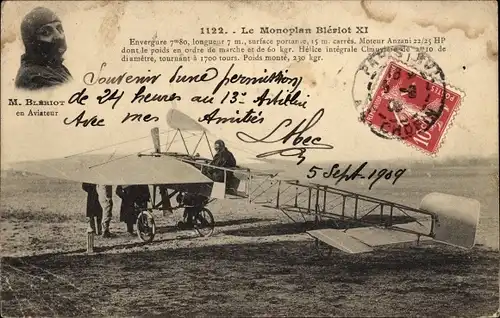 1122. - Le Monoplan Blériot XI
Envergure 7m80, longueur 7 m., surface portante, 15 m. carrés. Moteur Anzani 22/25 HP
dont le poids en ordre de marche est de 60 kgr. Hélice intégrale Chauvière de
diamètre, tournant à 1700 tours. Poids monté, 230 kgr.
M. BLÉRIOT
en Aviateur
Souvenir d'une permission
de 24 heures au 13e Artillerie
Avec mes Amitiés
5 Sept. 1909
10